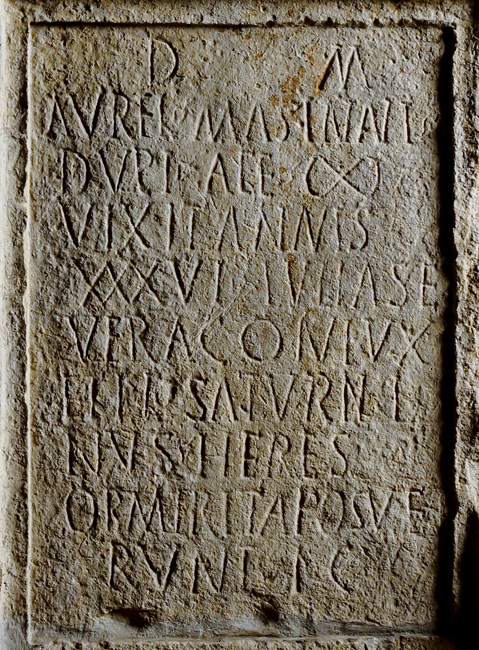 D M
AVREL MASINATI
DVPI ALE
VIXIT ANNIS
XXXVI IVLIA SE
VERA CONIVX
ET FIL SATVRNI
NVS HERES
OB MERITA POSVE
RVNT